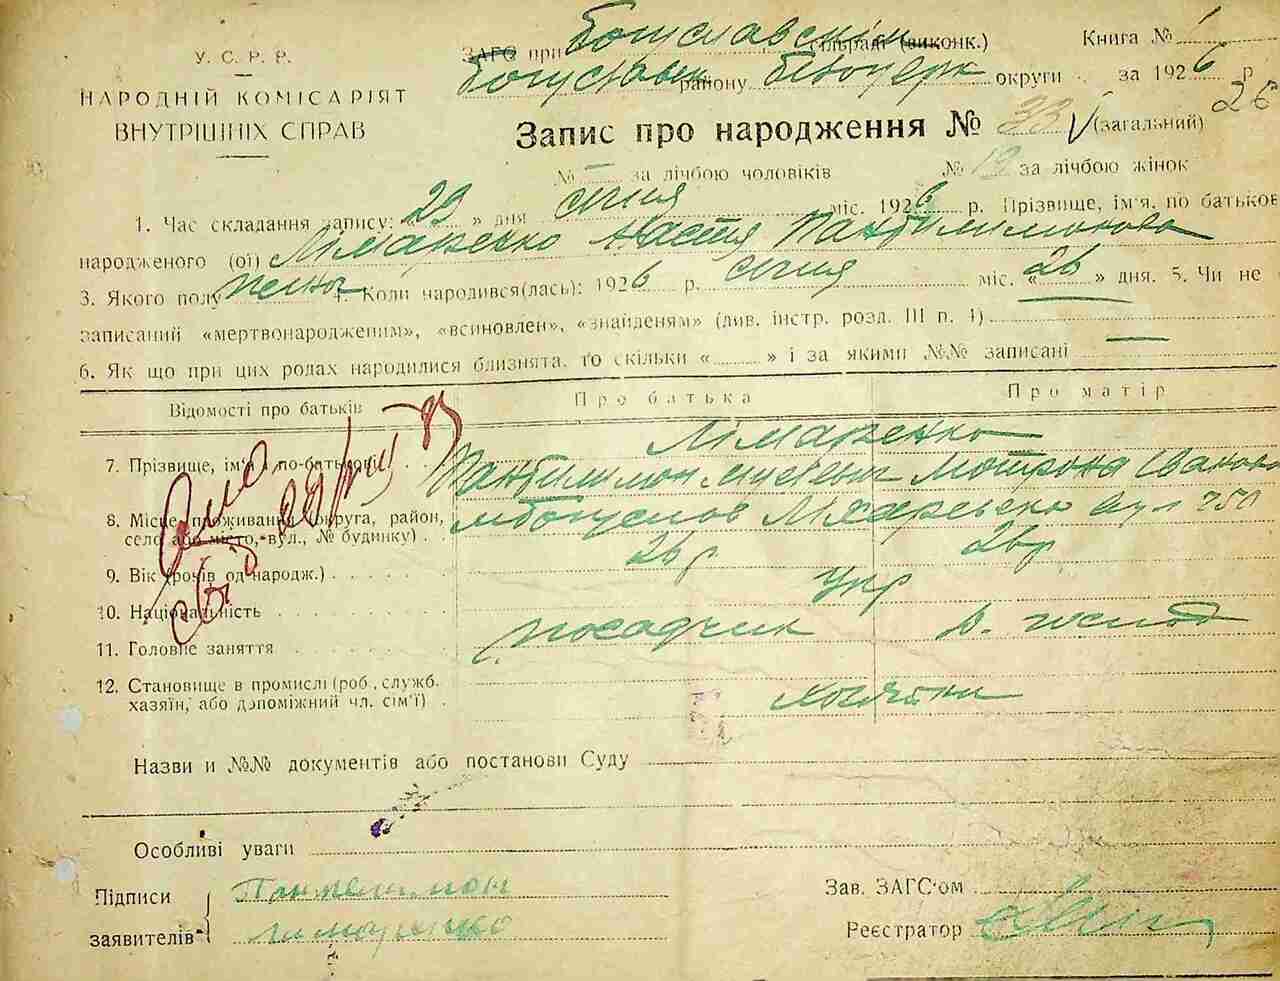 У.С.Р.Р.
НАРОДНІЙ КОМІСАРІЯТ
ВНУТРІШНІХ СПРАВ
ЗАГС при Богуславскім сільраді (виконк.) Книга № 1
Богуславськ району Білоцерк округи за 1926 р.
26
Запис про народження № 33 (загальний)
№ за лічбою чоловіків № 19 за лічбою жінок
1. Час складання запису: "29" дня січня міс. 1926 р. Прізвище, ім'я, по батькові
народженого (ої) Лімаренко Настя Пантилимонова
3. Якого полу жіноч 4. Коли народився(лась): 1926 р. січня міс. «26» дня. 5. Чи не
записаний «мертвонародженим», «всиновлен», «знайденям» (див. інстр. розд. III п. 4)
6. Як що при цих родах народилися близнята, то скільки « » і за якими №№ записані
Відомості про батьків Про батька Про матір
7. Прізвище, ім'я і по-батькові Лімаренко
Пантилимон Мотрона Іванова
8. Місце проживання (округа, район,
село або місто, вул., № будинку) м Богуслав вул 250
9. Вік (років од народж.) 26 р 26 р
10. Національність Укр
11. Головне заняття посадчик д. господ
12. Становище в промислі (роб., служб.
хазяїн, або допоміжний чл. сім'ї)
Назви и №№ документів або постанови Суду
Особливі уваги
Підписи Пантелимон
заявителів Лимаренко
Зав. ЗАГС'ом
Реєстратор